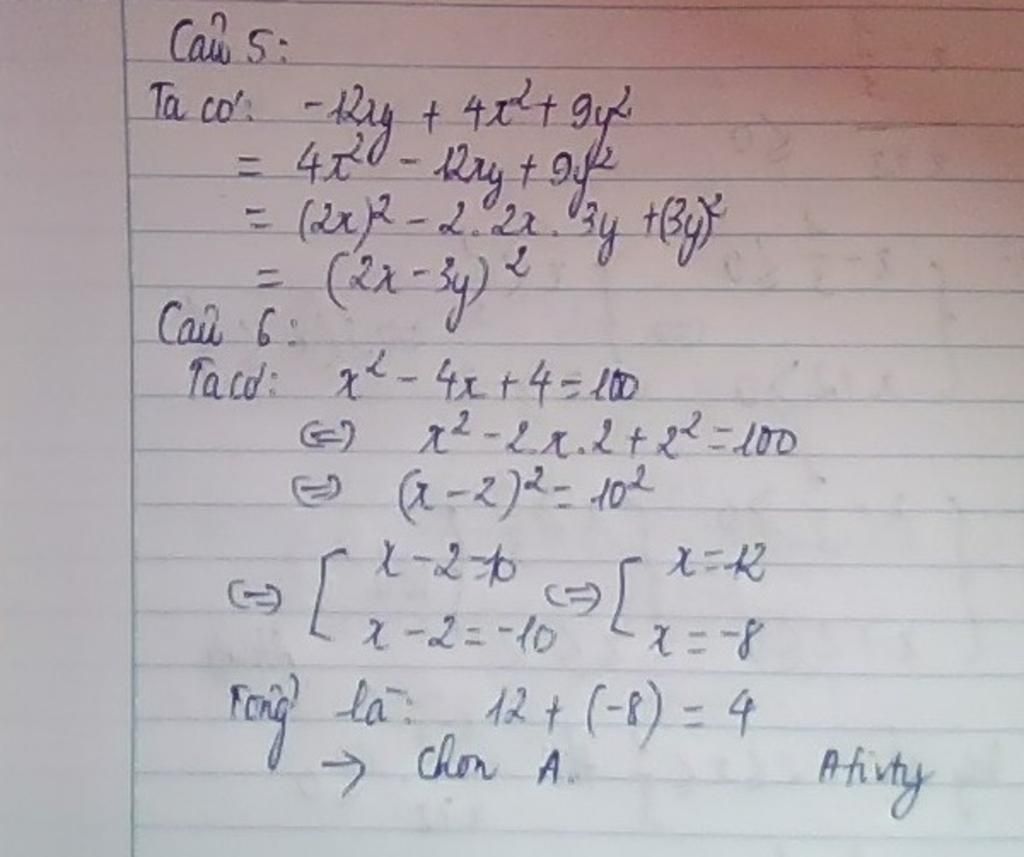 Câu 5:
Ta có: -12xy + 4x² + 9y²
= 4x² - 12xy + 9y²
= (2x)² - 2.2x.3y + (3y)²
= (2x - 3y)²
Câu 6:
Ta có: x² - 4x + 4 = 100
⇔ x² - 2.x.2 + 2² = 100
⇔ (x - 2)² = 10²
⇔ [ x - 2 = 10 ⇔ [ x = 12
x - 2 = -10 x = -8
Tổng là: 12 + (-8) = 4
→ Chọn A. Afivty